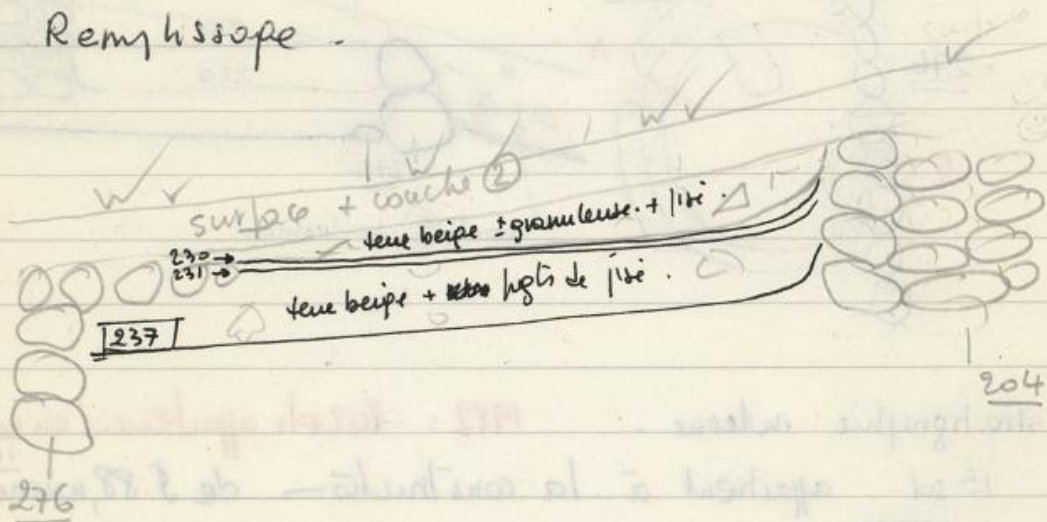 Remplissage.
surface + couche ②
terre beige ± granuleuse. + pisé.
230 →
231 →
terre beige + fgts de pisé.
237
204
276